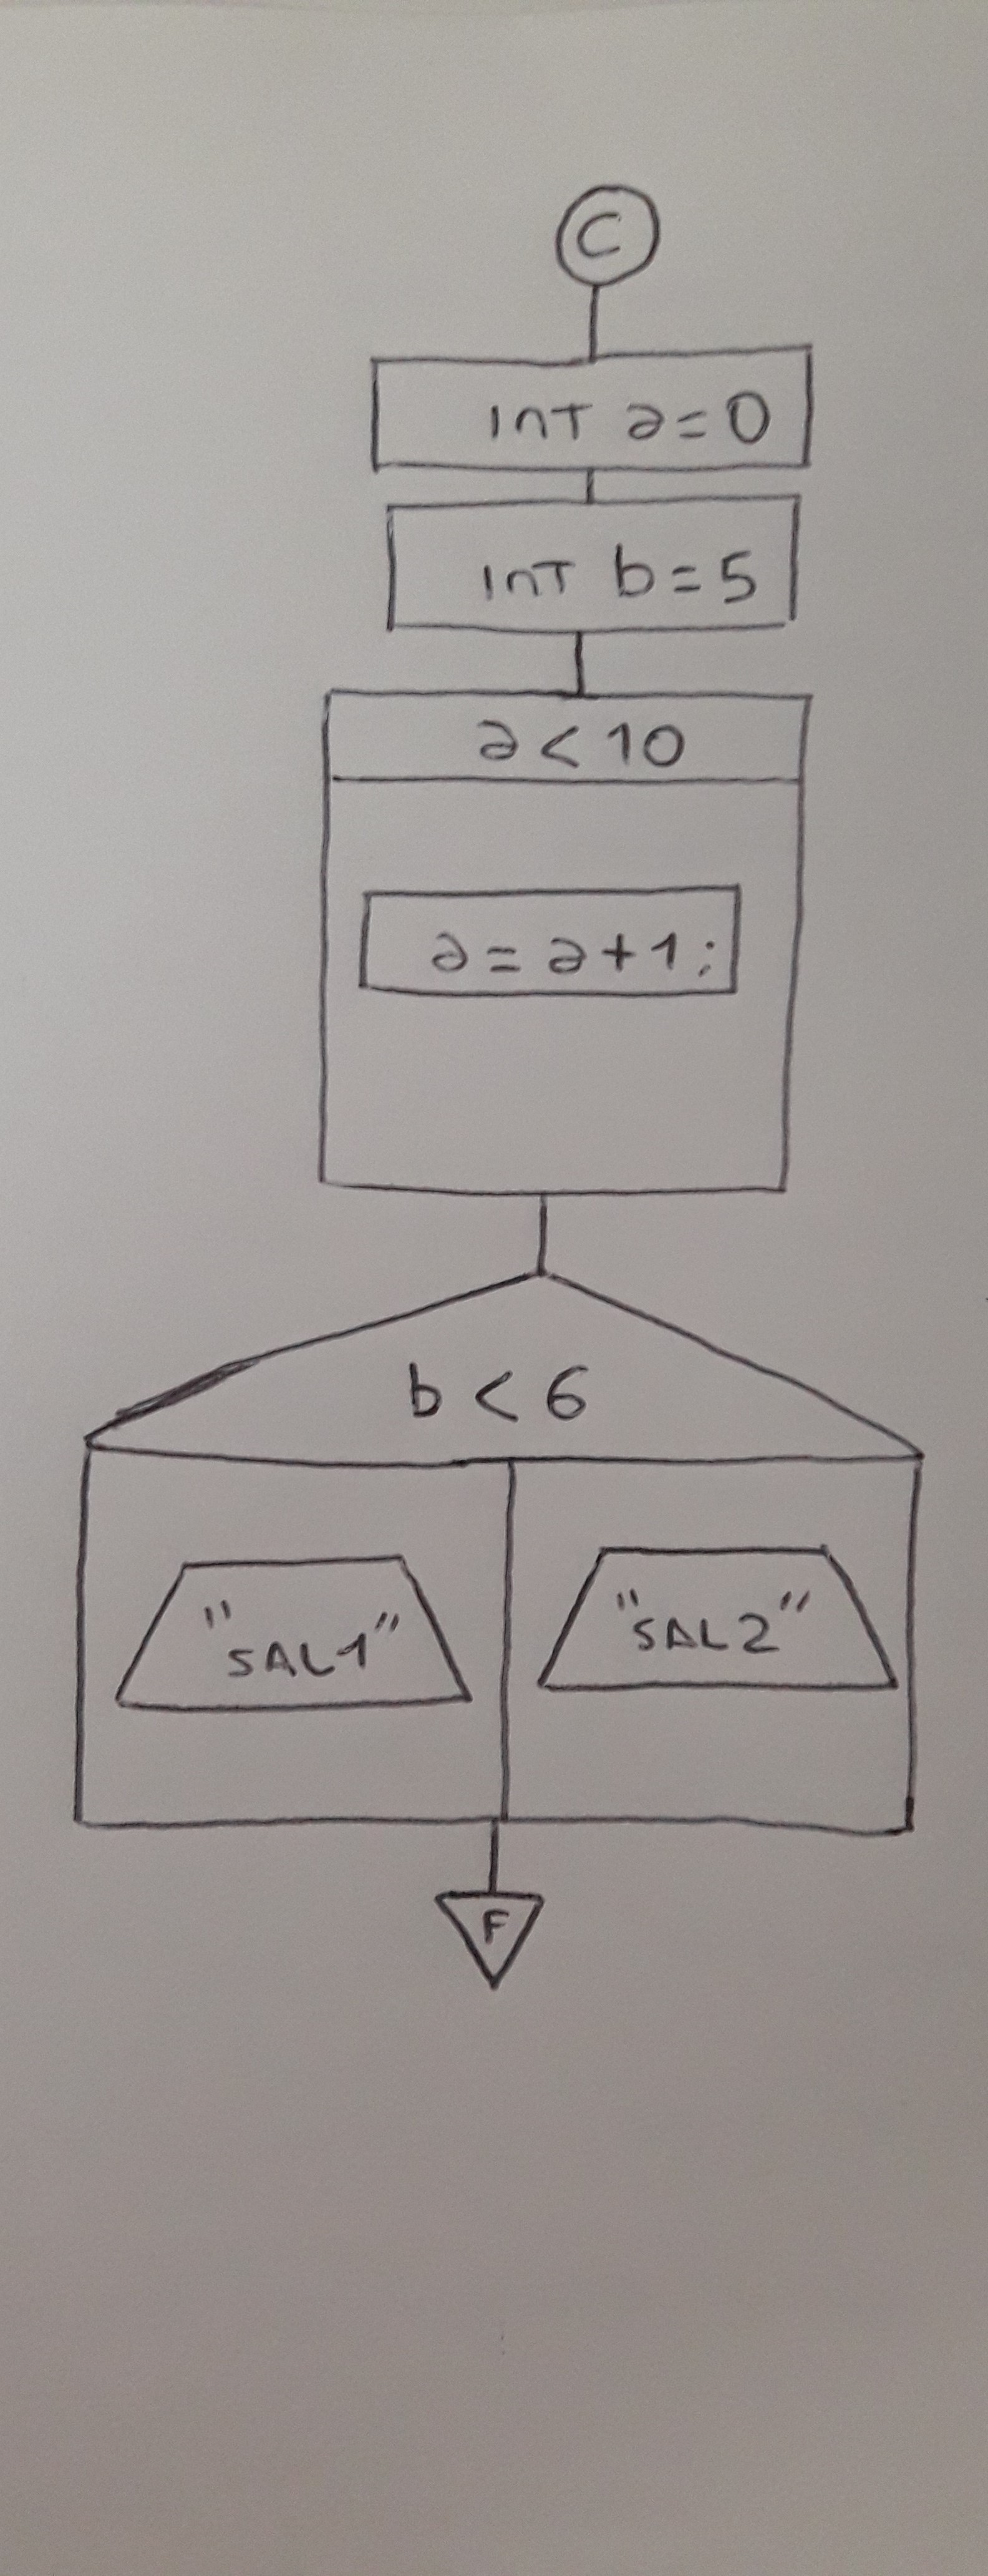 C
int a=0
int b=5
a<10
a=a+1;
b<6
"SAL1"
"SAL2"
F